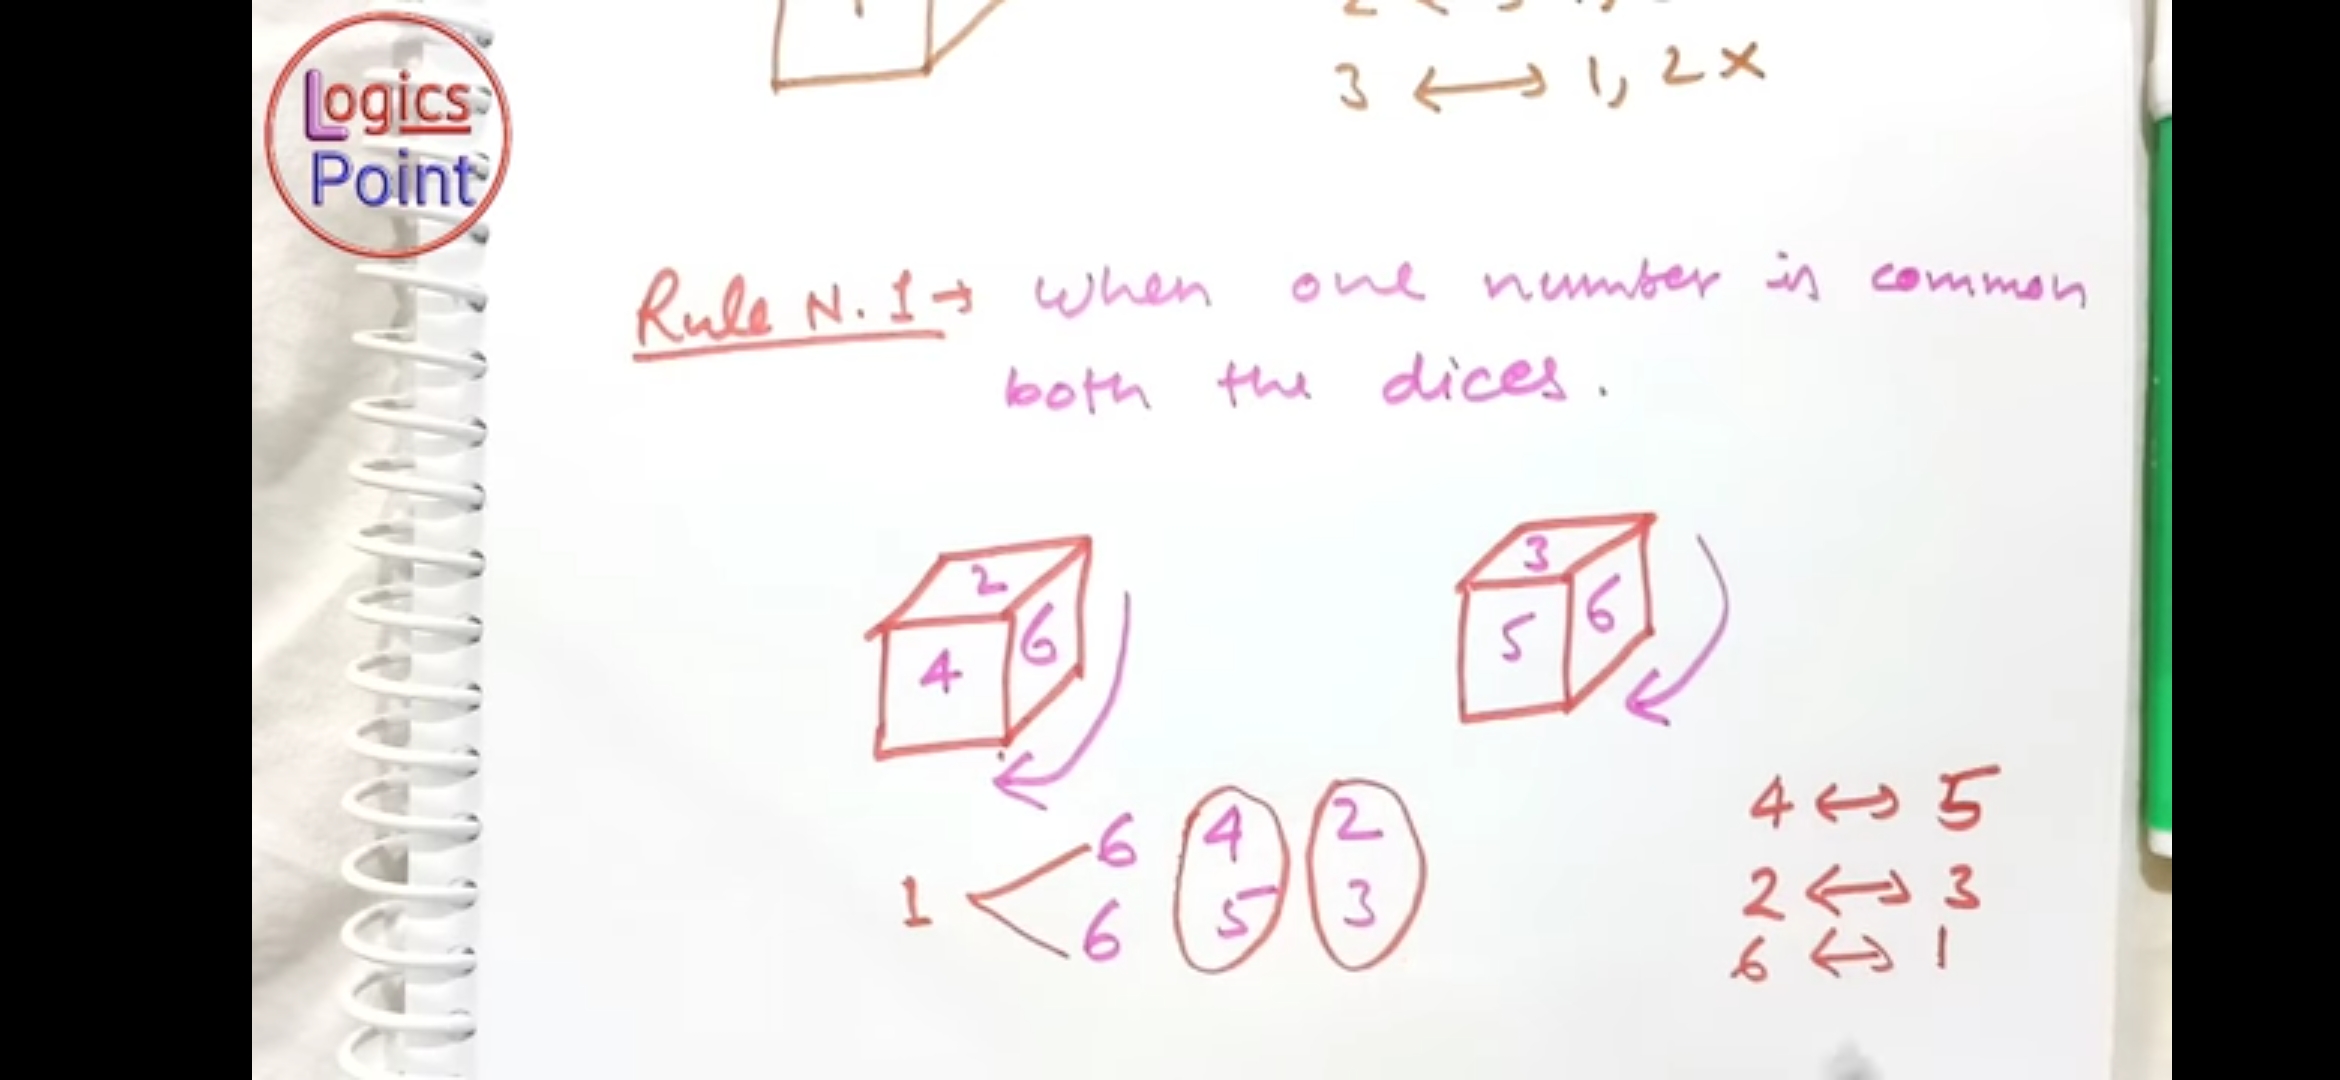 Logics
Point
3 ⟷ 1, 2 ×
Rule N. 1 → When one number is common
both the dices.
2
4
6
3
5
6
1 < 6 4 2
6 5 3
4 ↔ 5
2 ↔ 3
6 ↔ 1